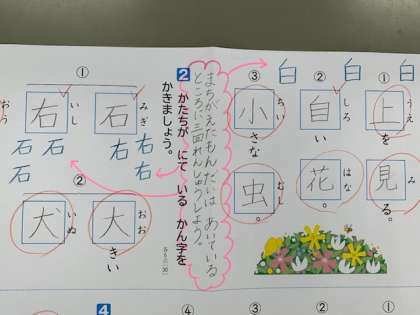 ①
上を
見る。
み
白 白 白
②
自い
しろ
花。
はな
③
小さな
ちい
虫。
むし
まちがえたもんだいは あいている
ところに三回れんしゅうしよう。
2 かたちが にて いる かん字を
かきましょう。
①
石
みぎ
右 右 右
右
いし
石 石 石
②
大きい
おお
犬
いぬ
①
②
③
④
4